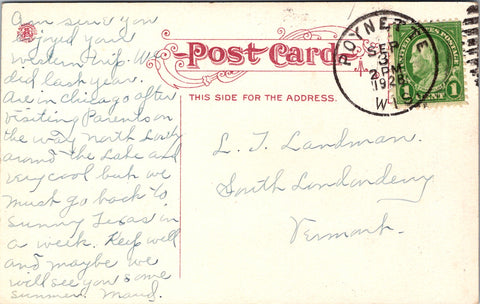 Am sure you
enjoyed your
western trip. We
did last year.
Are in Chicago after
visiting Parents on
the way North. Lovely
around the Lake and
very cool but we
must go back to
sunny Texas in
a week. Keep well
and maybe we
will see you some
summer. Maud.
Post Card
THIS SIDE FOR THE ADDRESS.
POYNETTE
SEP
3
2 PM
1928
WIS.
UNITED STATES POSTAGE
1 CENT 1
L. T. Landman.
South Londonderry
Vermont.